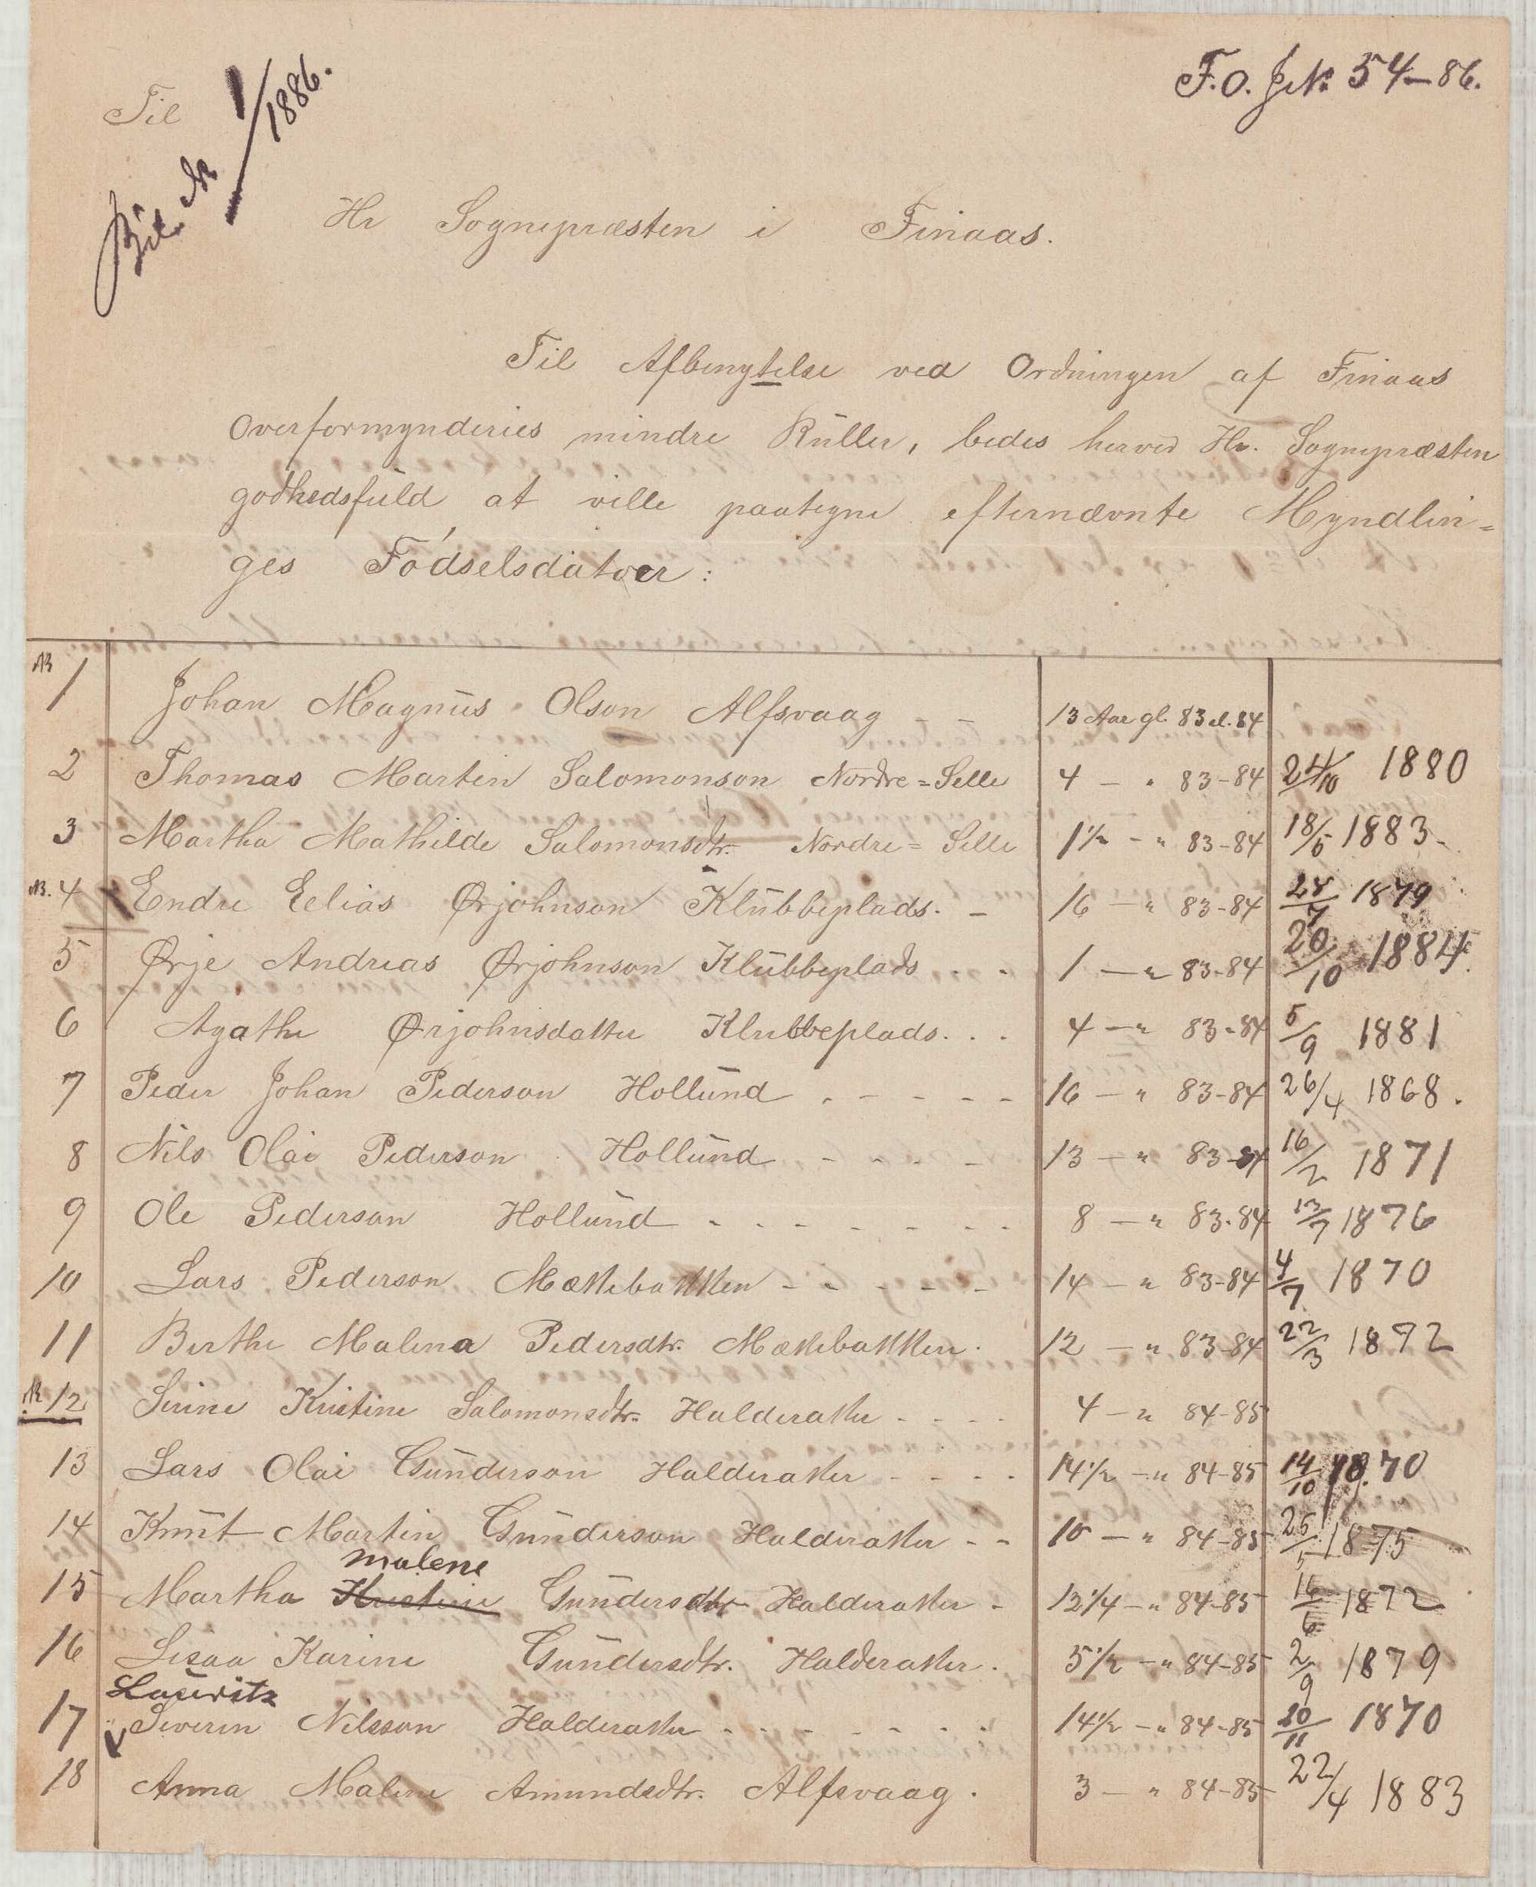 F.O. J№ 54-86.
Til
Bil. № 1/1886.
Hr Sognepræsten i Finaas.
Til Afbenytelse ved Ordningen af Finaas
Overformynderies mindre Rüller, bedes herved Hr. Sognepræsten
godhedsfüld at ville paategne efternævnte Myndlin=
ges Fódselsdatoer:
№ 1 Johan Magnüs Olson Alfsvaag - - 13 Aar gl. 83 el. 84
2 Thomas Martin Salomonson Nordre=Selle 4 — " 83-84 24/10 1880
3 Martha Mathilde Salomonsdtr. Nordre=Selle 1½ — " 83-84 18/5 1883.
№. 4 Endre Eelias Ørjohnson Klübbeplads. - 16 — " 83-84 28/7 1879
5 Ørje Andreas Ørjohnson Klübbeplads . . . 1 — " 83-84 20/10 1884.
6 Agathe Ørjohnsdatter Klubbeplads. . . 4 — " 83-84 5/9 1881
7 Peder Johan Pederson Hollünd . - - - - 16 — " 83-84 26/4 1868.
8 Nils Olai Pederson Hollünd - - - - 13 — " 83-84 16/2 1871
9 Ole Pederson Hollünd - - - - - - - 8 — " 83-84 13/7 1876
10 Lars Pederson Mækkebakken - - - - - 14 — " 83-84 4/7 1870
11 Berthe Malena Pedersdtr. Mækkebakken. 12 — " 83-84 22/3 1872
№ 12 Serine Kristine Salomonsdtr. Halderaker - - - - 4 — " 84-85
13 Lars Olai Günderson Halderaker - - - - 14½ — " 84-85 14/10 1870
14 Knüt Martin Günderson Halderaker - - 10 — " 84-85 25/5 1875
malene
15 Martha Kristine Gündersdtr Halderaker - 12¼ — " 84-85 16/6 1872
16 Lisaa Karine Gündersdtr. Halderaker. 5½ — " 84-85 2/9 1879
Lauritz
17 Severin Nilsson Halderaker - - - - - - - 14½ — " 84-85 20/11 1870
18 Anna Malene Amundsdtr. Alfsvaag. 3 — " 84-85 22/4 1883